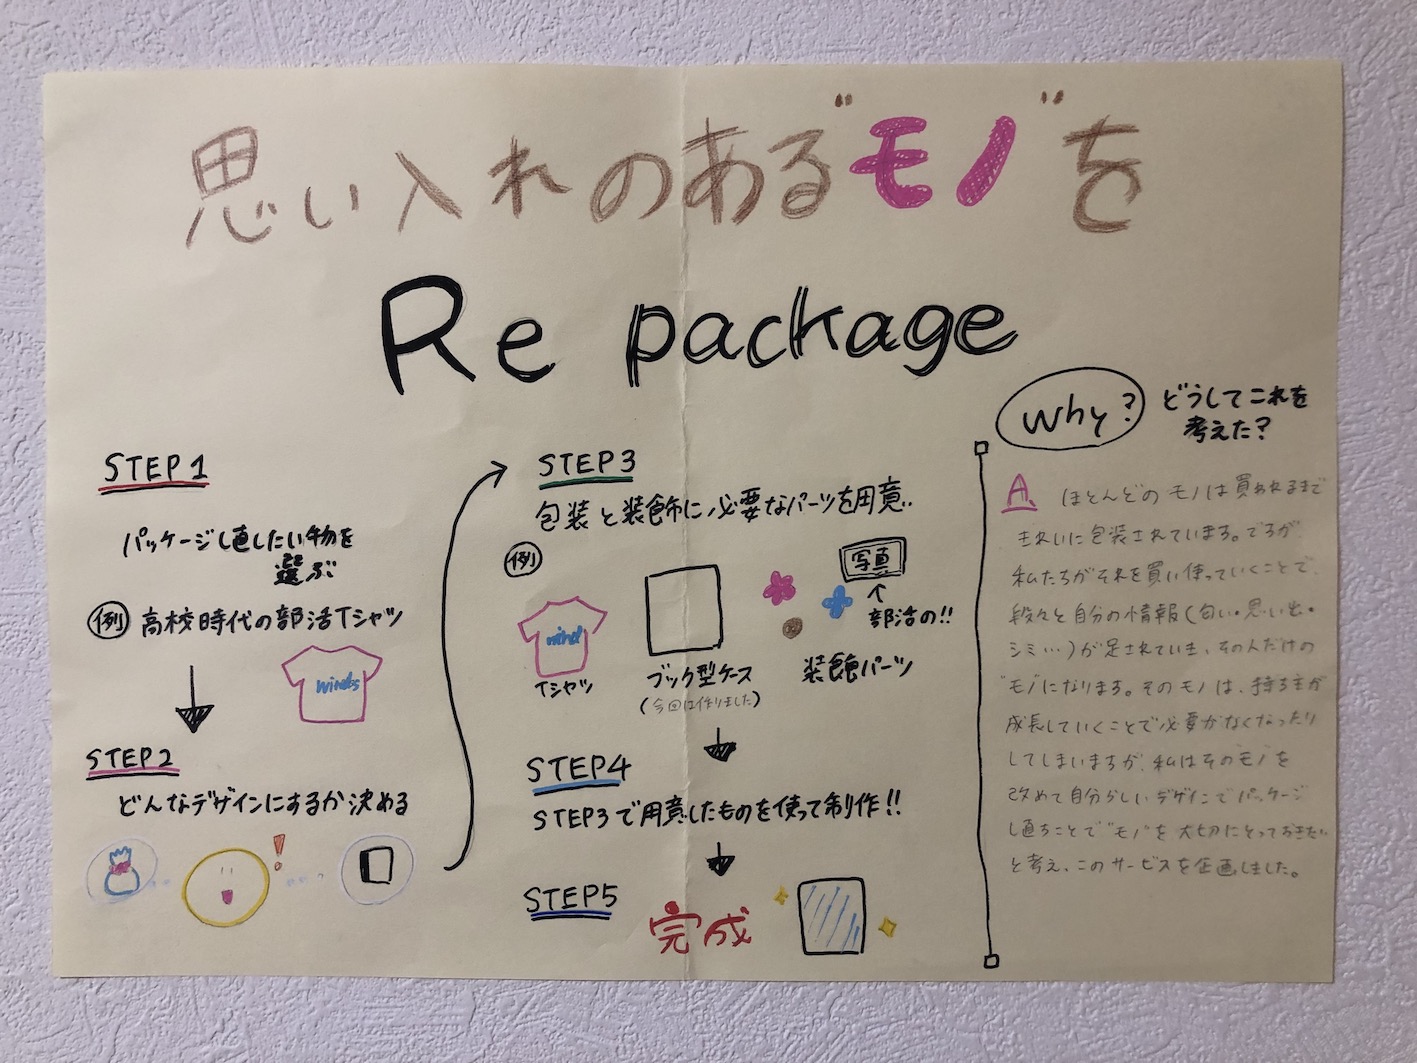 思い入れのある"モノ"を
Re package
STEP1
パッケージし直したい物を
選ぶ
例 高校時代の部活Tシャツ
winds
STEP2
どんなデザインにするか決める
!
STEP3
包装と装飾に必要なパーツを用意..
例
wind
Tシャツ
ブック型ケース
(今回は作りました)
写真
↑
部活の!!
装飾パーツ
STEP4
STEP3で用意したものを使って制作!!
STEP5
完成
Why?
どうしてこれを
考えた?
A. ほとんどのモノは買われるまで
きれいに包装されています。ですが、
私たちがそれを買い使っていくことで、
段々と自分の情報(匂い・思い出・
シミ…)が足されていき、その人だけの
"モノ"になります。そのモノは、持ち主が
成長していくことで必要がなくなったり
してしまいますが、私はそのモノを
改めて自分らしいデザインでパッケージ
し直すことで"モノ"を大切にとっておきたい
と考え、このサービスを企画しました。